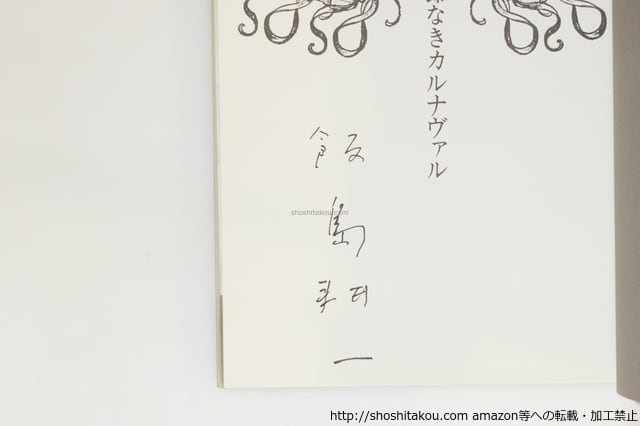 なきカルナヴァル
飯島耕一
shoshitakou.com
http://shoshitakou.com amazon等への転載・加工禁止